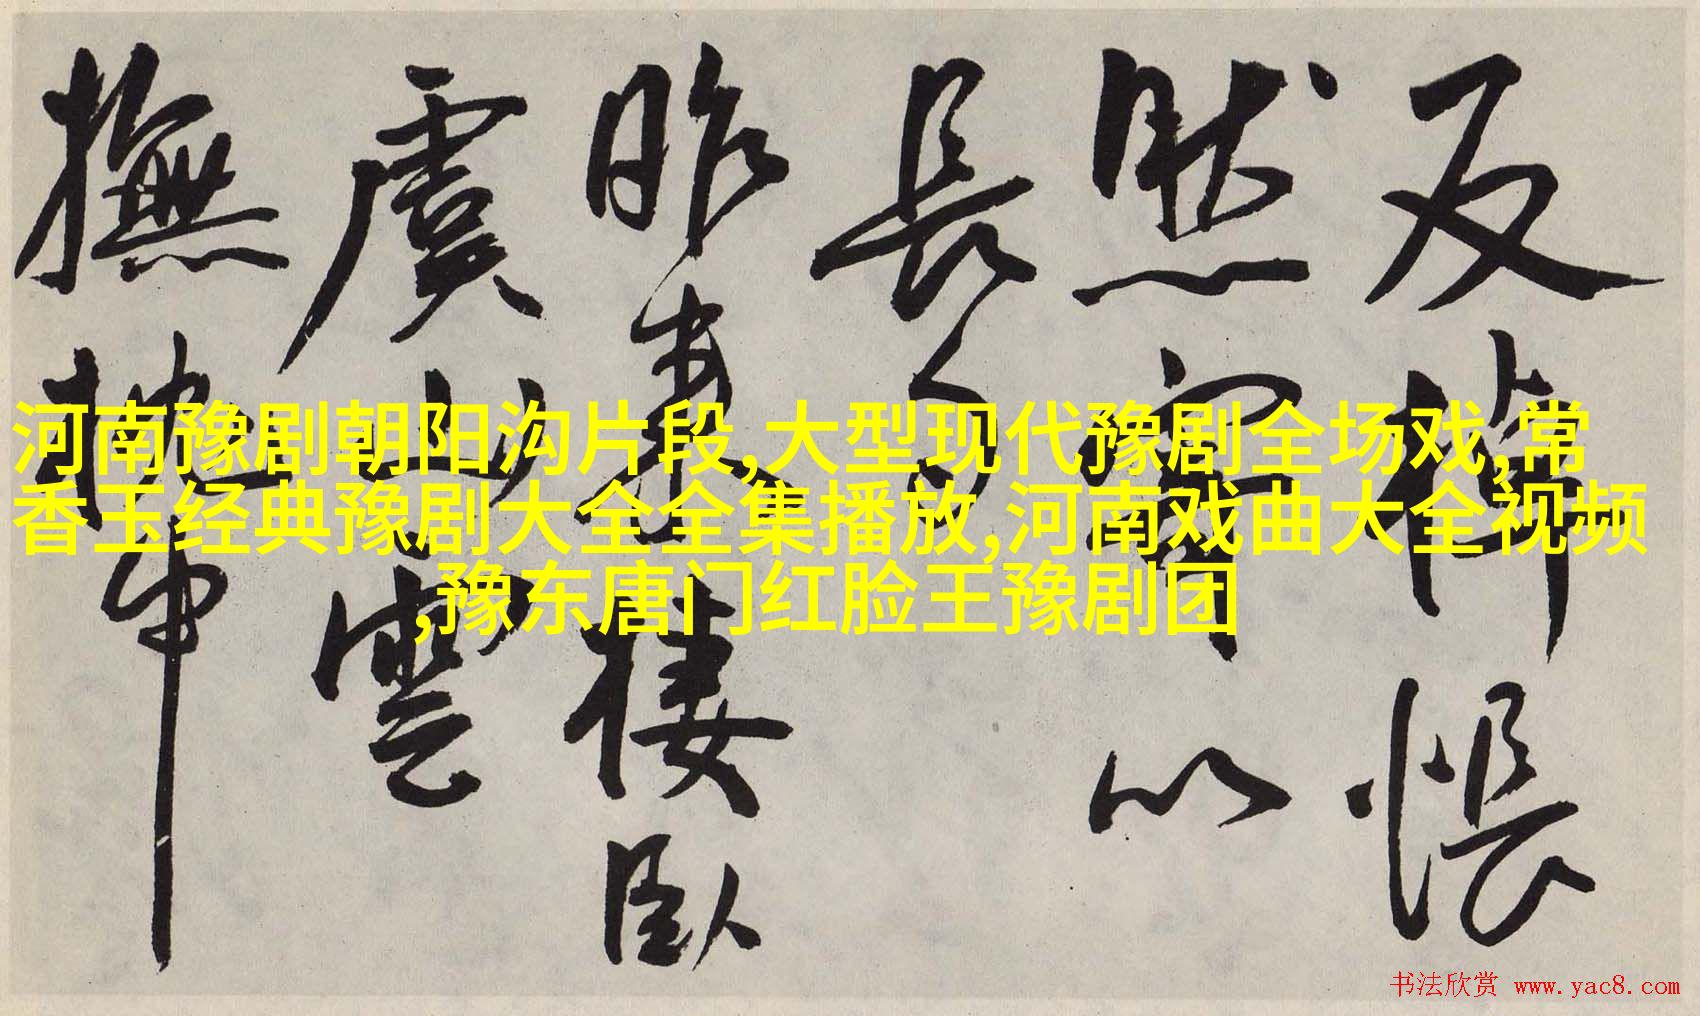 河南豫剧朝阳沟片段,大型现代豫剧全场戏,常
香玉经典豫剧大全全集播放,河南戏曲大全视频
,豫东唐门红脸王豫剧团
反棹悵
然以
長句
昨來樓臥
虞山雲
撫
书法欣赏 www.yac8.com